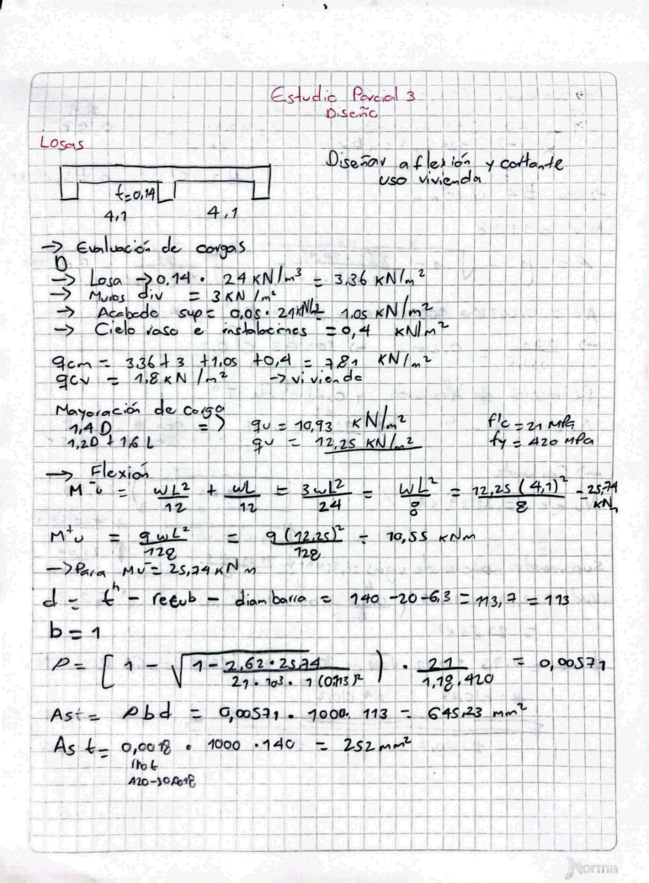 Estudio Parcial 3
Diseño
Losas
Diseñar a flexión y cortante
uso vivienda
t=0,14
4,1 4,1
→ Evaluación de cargas
D
→ Losa → 0,14 · 24 KN/m³ = 3,36 KN/m²
→ Muros div = 3 KN/m²
→ Acabado sup = 0,05 · 21 KN/m² = 1,05 KN/m²
→ Cielo raso e instalaciones = 0,4 KN/m²
qcm = 3,36 + 3 + 1,05 + 0,4 = 7,81 KN/m²
qcv = 1,8 KN/m² → vivienda
Mayoración de carga
1,4 D => qu = 10,93 KN/m² f'c = 21 MPa
1,2D + 1,6 L qu = 12,25 KN/m² fy = 420 MPa
→ Flexión
M⁻u = wL²/12 + wL/12 = 3wL²/24 = wL²/8 = 12,25 (4,1)²/8 = 25,74 KN
M⁺u = 9wL²/128 = 9(12,25)²/128 = 10,55 KNm
→ Para Mu⁻ = 25,74 KNm
d = t^h - recub - diam barra = 140 - 20 - 6,3 = 113,7 = 113
b = 1
ρ = [1 - √(1 - 2,62 · 25,74 / 21 · 10³ · 1 (0,113)²) · 21 / 1,18 · 420 = 0,00571
Ast = ρbd = 0,00571 · 1000 · 113 = 645,23 mm²
As t = 0,0018 · 1000 · 140 = 252 mm²
420→0,0018
Norma